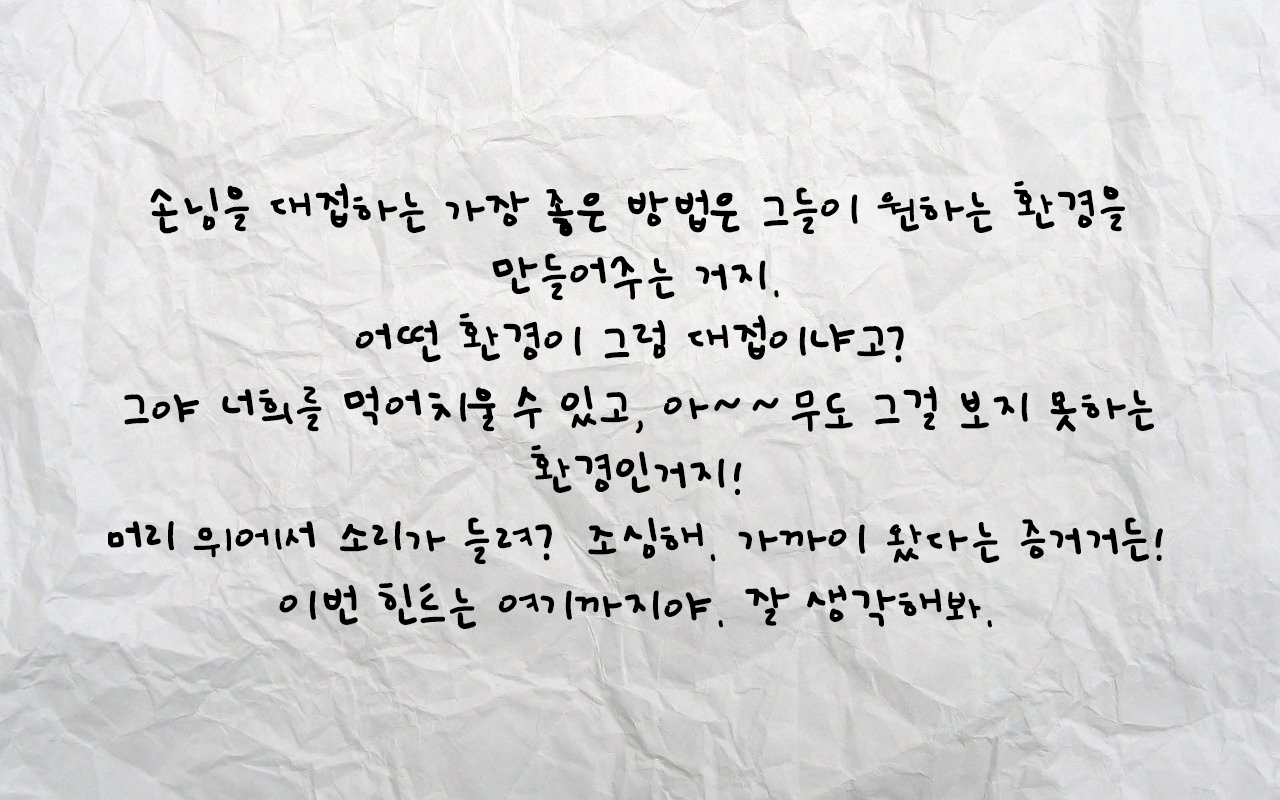 손님을 대접하는 가장 좋은 방법은 그들이 원하는 환경을
만들어주는 거지.
어떤 환경이 그럼 대접이냐고?
그야 너희를 먹어치울 수 있고, 아~~무도 그걸 보지 못하는
환경인거지!
머리 위에서 소리가 들려? 조심해. 가까이 왔다는 증거거든!
이번 힌트는 여기까지야. 잘 생각해봐.